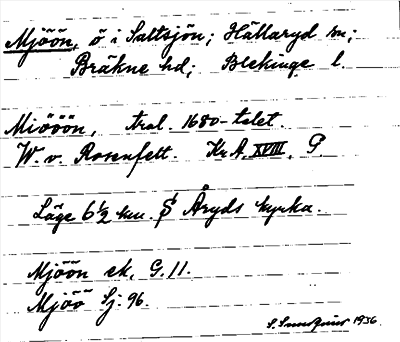 Mjöön, ö i Saltsjön; Hällaryd sn;
Bräkne hd; Blekinge l.
Miööön, tral. 1680-talet.
W. v. Rosenfelt. Kr.A. XVIII, 9
Läge 6½ km. S Åryds kyrka.
Mjöön ek. G. 11.
Mjöö Sj. 96.
1936